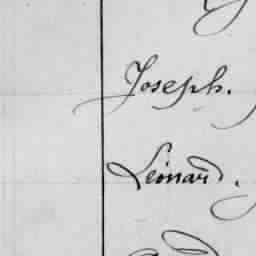 Joseph.
Leinard.